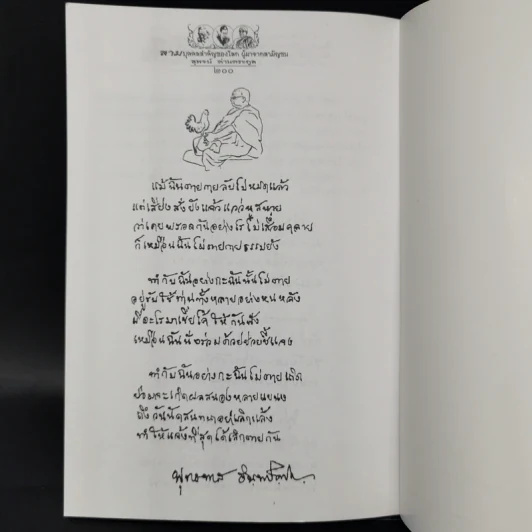 สามบุคคลสำคัญของโลก ผู้มาจากสามัญชน
๒๐๐
แม้ฉันตายกายลับไปหมดแล้ว
แต่เสียงสั่งยังแจ้วแว่วหูสหาย
ว่าเคยพลอดกันอย่างไรไม่เสื่อมคลาย
ก็เหมือนฉันไม่ตายกายธรรมยัง
ทำกับฉันอย่างกะฉันนั้นไม่ตาย
อยู่กับท่านทั้งหลายอย่างหนหลัง
มีอะไรมาเขี่ยไค้ให้กันฟัง
เหมือนฉันนั่งร่วมด้วยช่วยชี้แจง
ทำกับฉันอย่างกะฉันไม่ตายเถิด
ย่อมจะเกิดผลสนองหลายแขนง
ทุกวันนัดสนทนาอย่าเลิกแล้ง
ทำให้แจ้งที่สุดได้เลิกตายกัน
พุทธทาส อินทปัญโญ